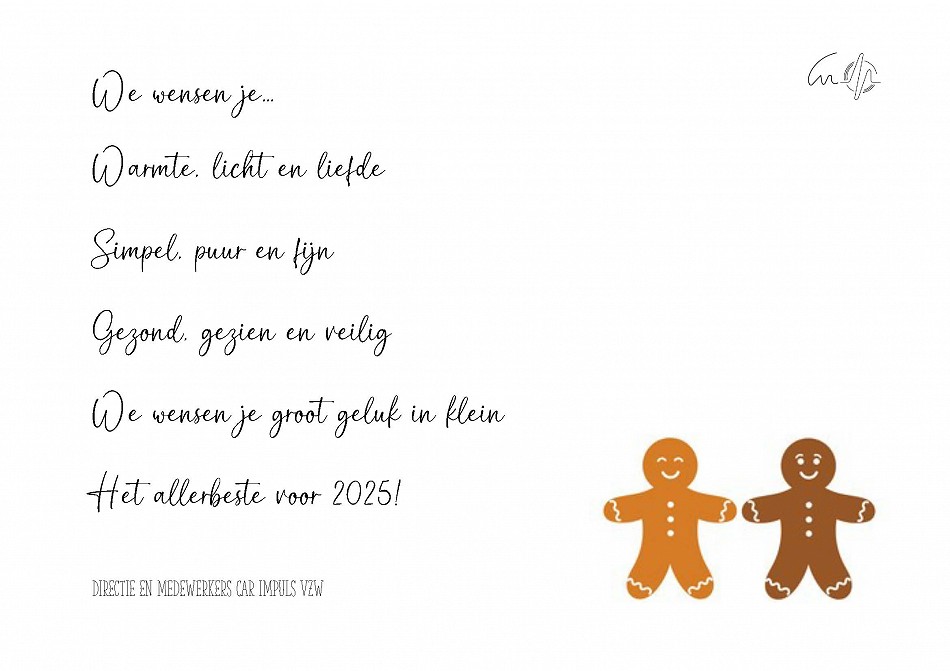 We wensen je...
Warmte, licht en liefde
Simpel, puur en fijn
Gezond, gezien en veilig
We wensen je groot geluk in klein
Het allerbeste voor 2025!
DIRECTIE EN MEDEWERKERS CAR IMPULS VZW